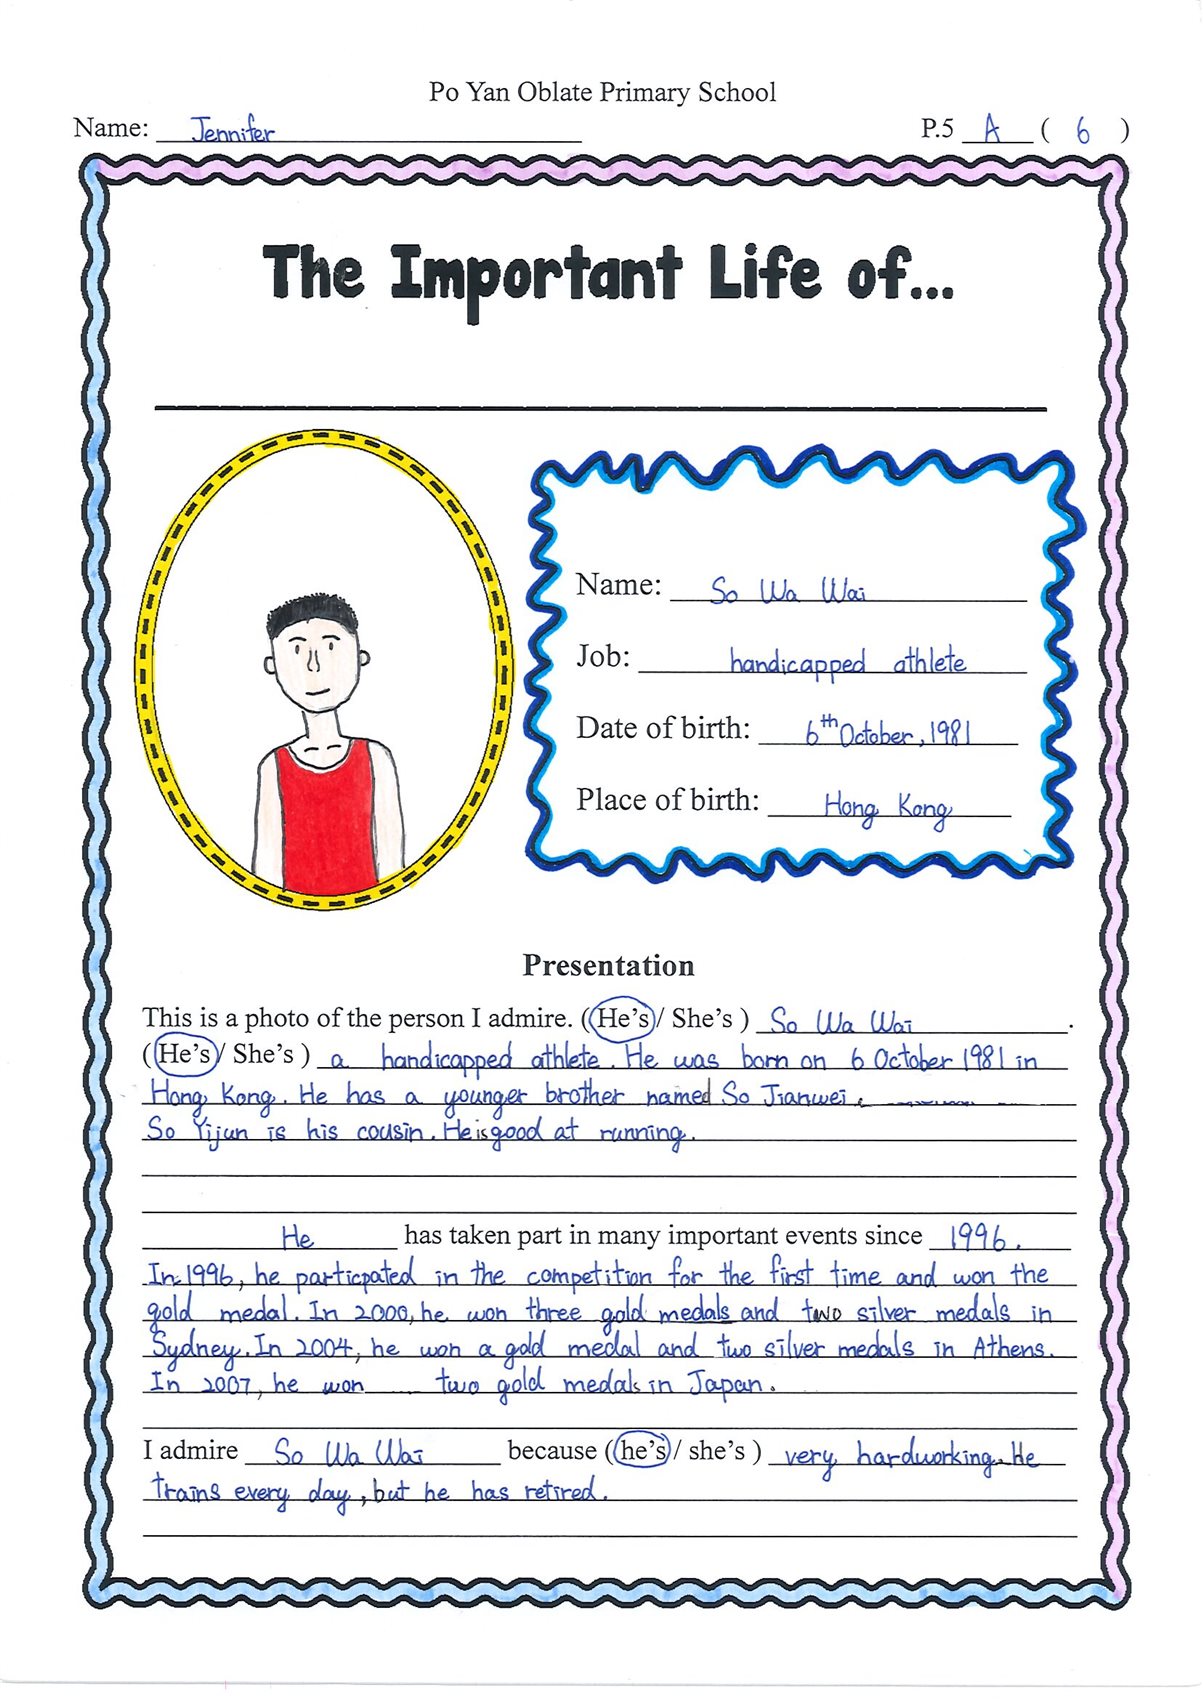 Po Yan Oblate Primary School
Name: Jennifer P.5 A ( 6 )
The Important Life of...
Name: So Wa Wai
Job: handicapped athlete
Date of birth: 6th October, 1981
Place of birth: Hong Kong
Presentation
This is a photo of the person I admire. (He's / She's ) So Wa Wai.
( He's / She's ) a handicapped athlete. He was born on 6 October 1981 in
Hong Kong. He has a younger brother named So Jianwei.
So Yijun is his cousin. He is good at running.
He has taken part in many important events since 1996.
In 1996, he particpated in the competition for the first time and won the
gold medal. In 2000, he won three gold medals and two silver medals in
Sydney. In 2004, he won a gold medal and two silver medals in Athens.
In 2007, he won two gold medals in Japan.
I admire So Wa Wai because ( he's / she's ) very hardworking. He
trains every day, but he has retired.